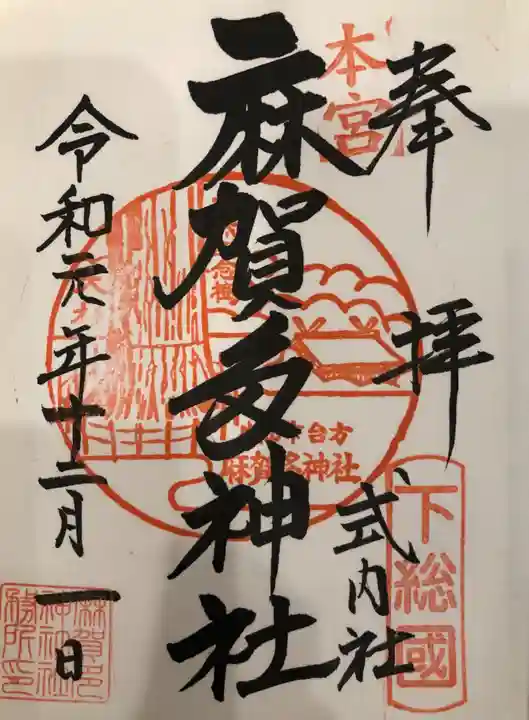 奉拝
本宮
下総國
式内社
麻賀多神社
台方
麻賀多神社
令和元年十二月一日
麻賀多
神社社
務所印